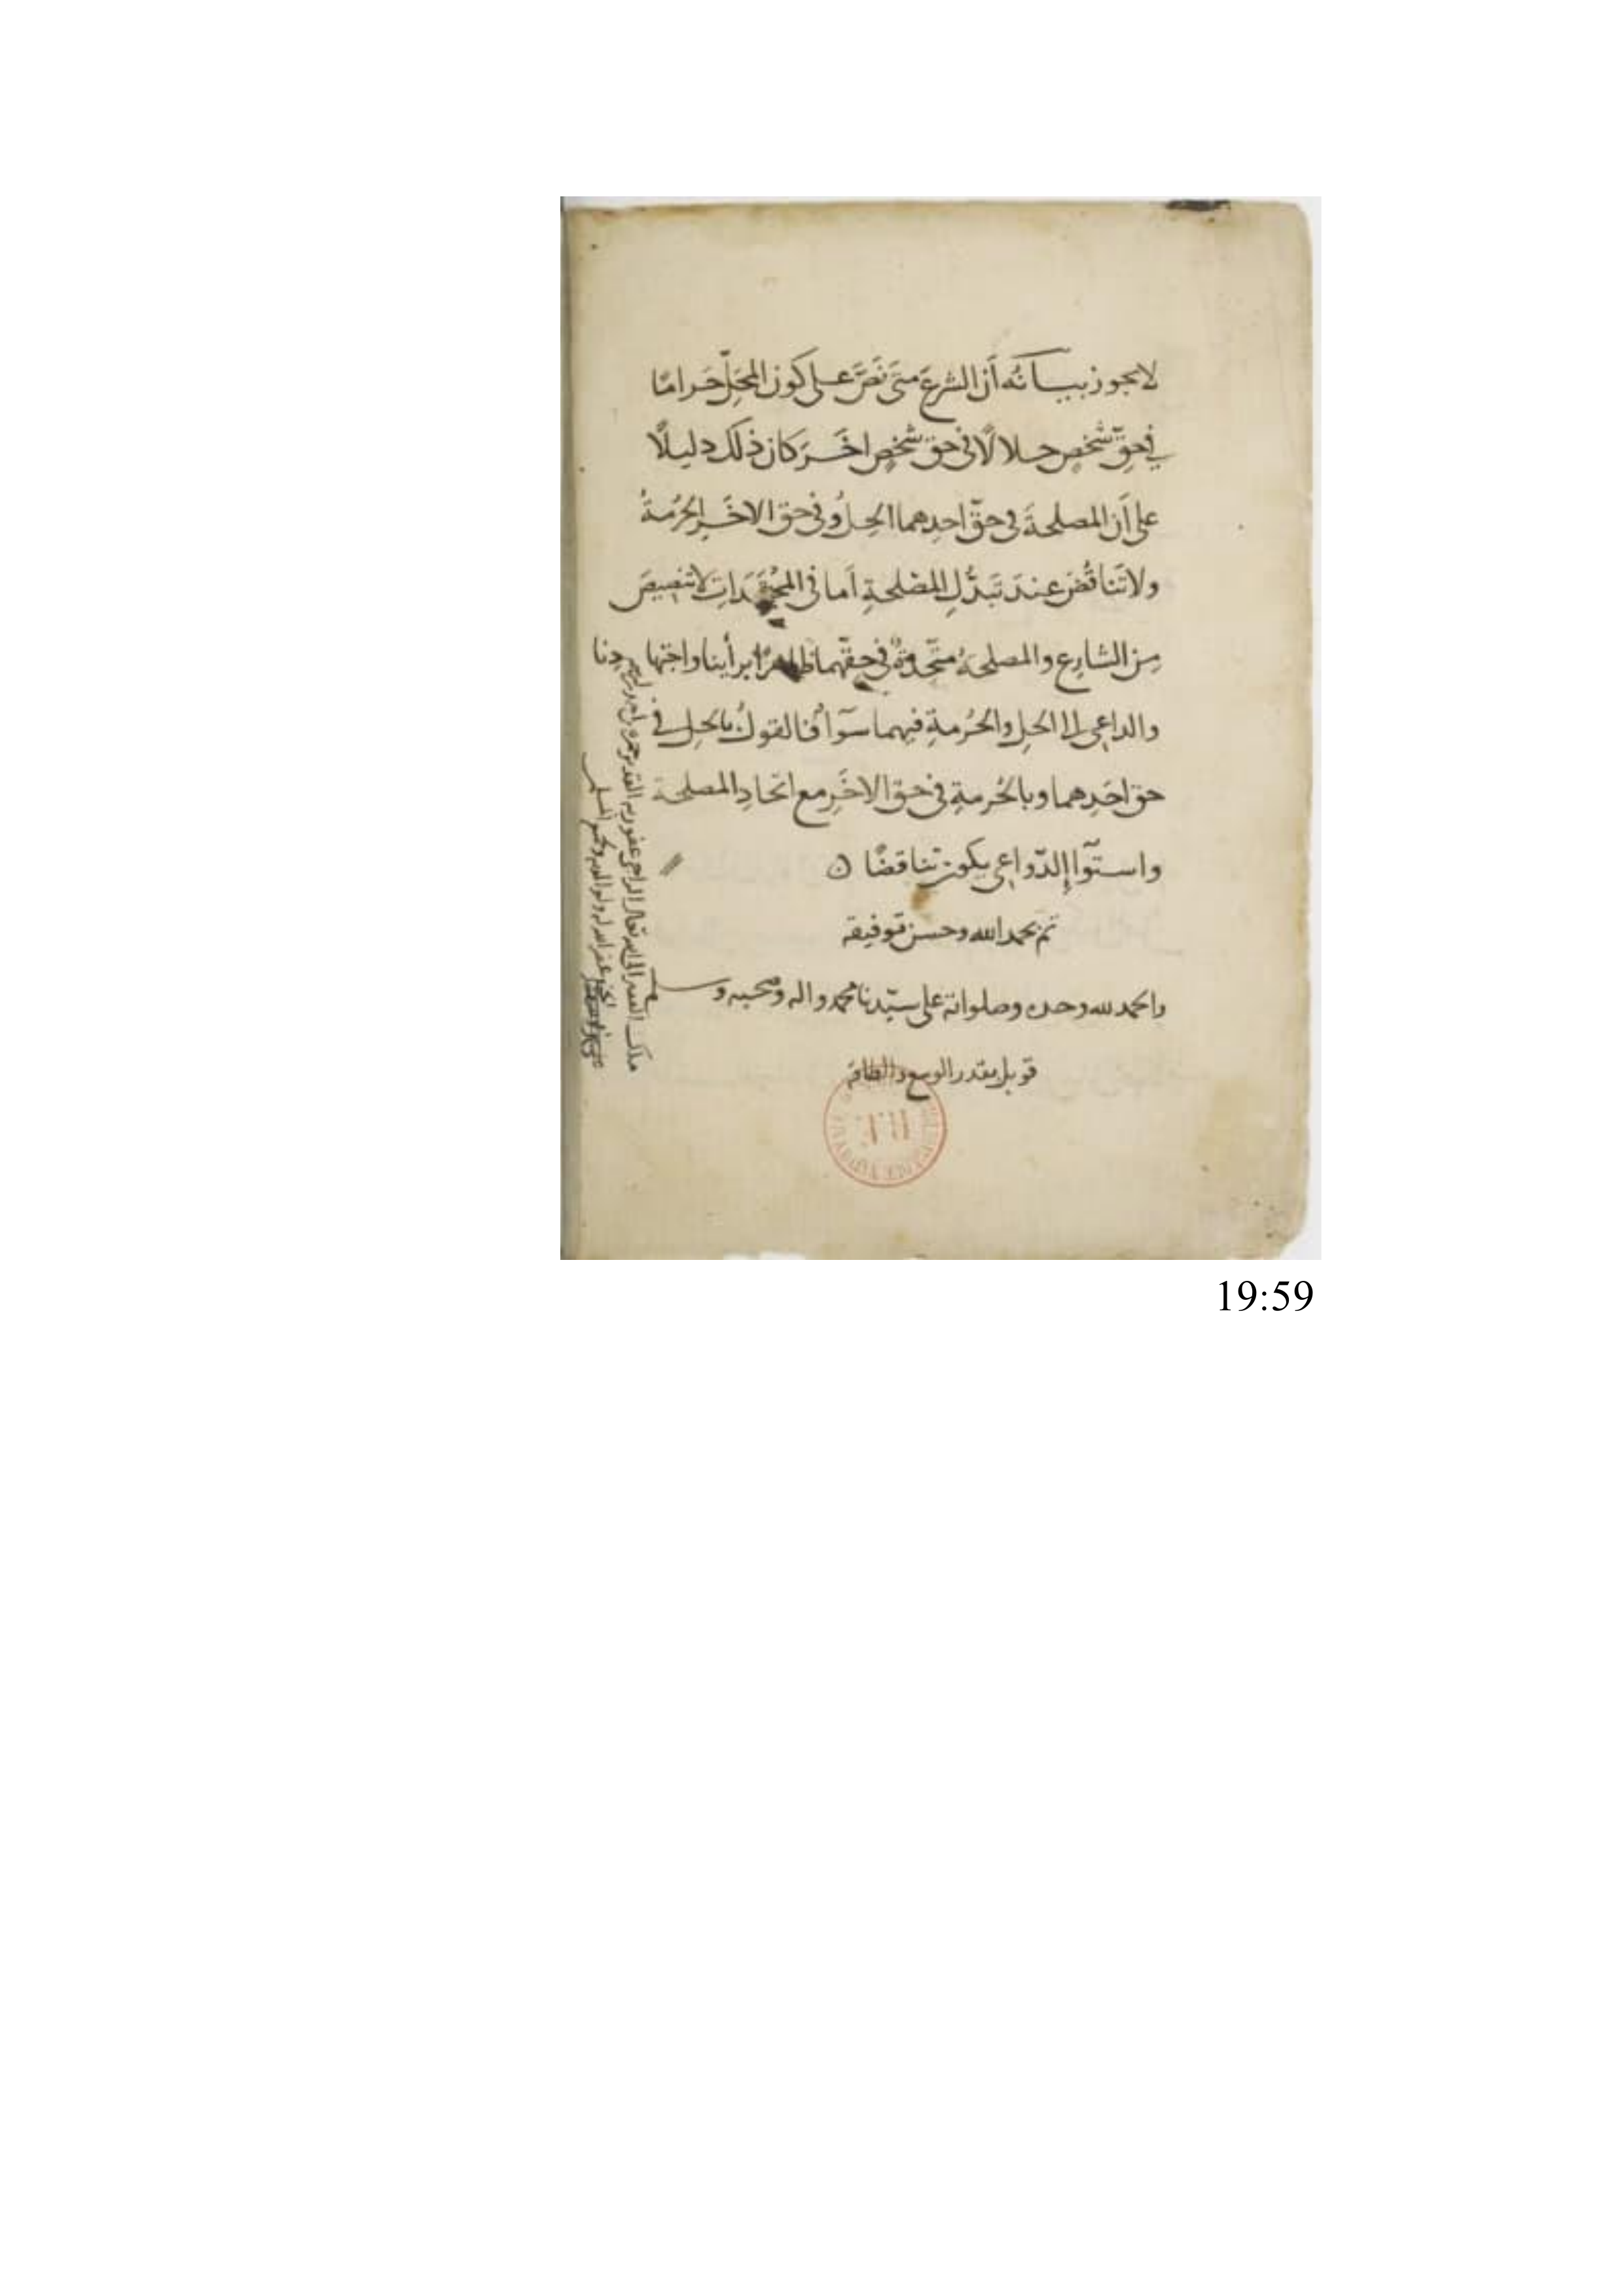 لا يجوز بيانُه أنّ الشرعَ متى نَصَّ على كون المحَلِّ حَرامًا
في حقّ شخصٍ حلالًا في حق شخصٍ اخَرَ كان ذلك دليلًا
على أن المصلحةَ في حقّ احدِهما الحِلُ وفي حق الاخَرِ الحُرمةُ
ولا تَناقُضَ عندَ تَبَدُّلِ المصْلحةِ أما في المجتَهَدَاتِ لا تنصيصَ
مِن الشارِع والمصلحةُ متّحِدةٌ في حقّهما ظاهرًا برأينا واجتهادِنا
والداعِي إلى الحِلِ والحُرمةِ فيهما سوَآءٌ فالقولُ بالحِل في
حق احَدِهما وبالحُرمةِ في حقّ الاخَرِ مع اتحادِ المصلحة
واستوآءِ الدّواعِي يكون تناقضًا ن
تم بحمد الله وحسن توفيقه
والحمد لله وحده وصلواته على سيّدنا محمد واله وصحبه وسلم
قوبل بقدر الوسع والطاقة
19:59